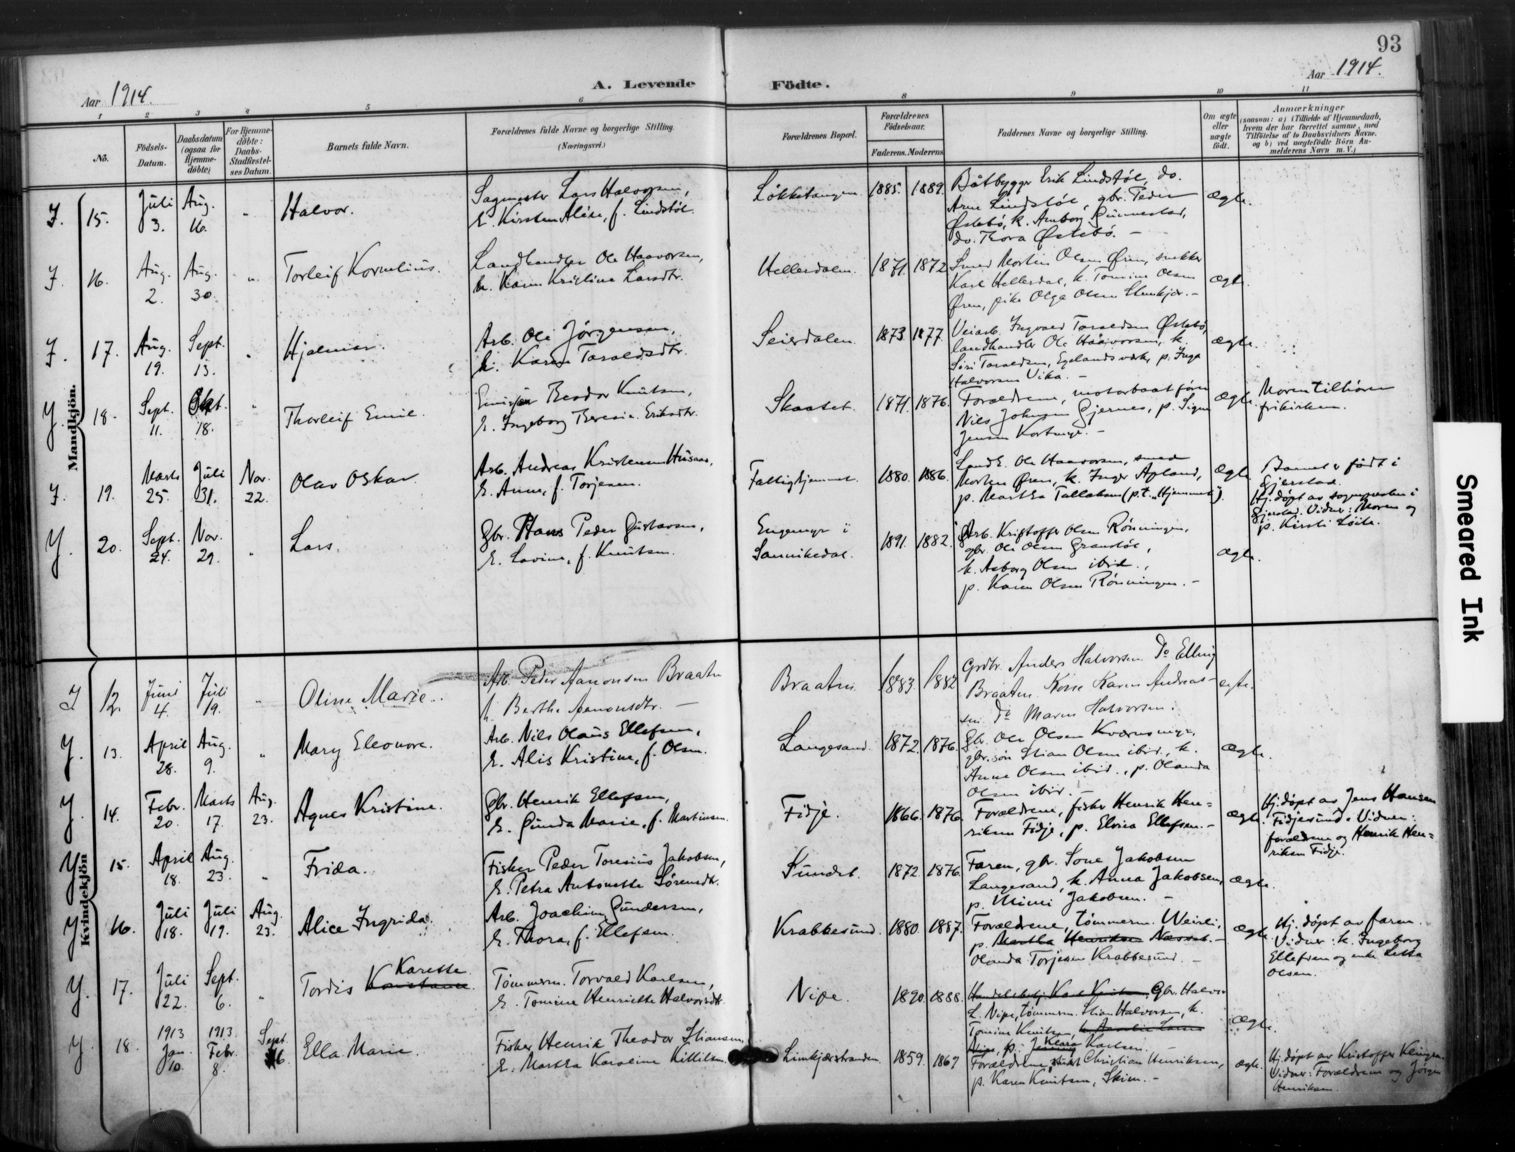 93
Aar 1914.
A. Levende Födte.
Aar 1914.
1 2 3 4 5 6 8 9 10 11
No.
Födsels-Datum.
Daabsdatum (ogsaa for Hjemme-døbte)
For Hjemme-døbte: Daabs-Stadfæstel-ses Datum.
Barnets fulde Navn.
Forældrenes fulde Navne og borgerlige Stilling.
(Næringsvei.)
Forældrenes Bopæl.
Forældrenes Födselsaar.
Faderens. Moderens
Faddernes Navne og borgerlige Stilling.
Om ægte eller uægte födt.
Anmærkninger
(saasom: a) i Tilfælde af Hjemmedaab, hvem der har forrettet samme, med Tilföielse af to Daabsvidners Navne, og b) ved uægtefödte Börn An-melderens Navn m. V.)
Mandkjön.
15. Juli 3. Aug. 16. " Halvor.
Lars Halvorsen,
E. Kirsten f. Lindstöl
Løkketangen 1885. 1889.
Båtbygger Erik Lindstöl, do.
Arne Lindstöl, gbr. Peder
Østebö, k. Gunnestad,
do. Thora Østebö. —
ægte.
16. Aug. 2. Aug. 30. " Torleif Kornelius.
Landhandler Ole Haavorsen,
Karen Kristine Larsdtr.
Hellersdalen. 1871. 1872
Smed Morten Olsen Øren, snekker
Karl Hellersdal, k. Tomine Olsen
Øren, pike Olga Olsen
ægte.
17. Aug. 19. Sept. 13. " Hjalmar.
Arb. Ole Jörgensen,
Karen Taraldsdtr.
Seierdalen. 1873. 1877.
Veiarb. Ingvald Taraldsen Østebö,
landhandler Ole Haavorsen, k.
Siri Taraldsen, Egelands verk, p. Inga
Halvorsen Vika. —
ægte.
18. Sept. 11. Okt. 18. " Thorleif Emil.
Knutsen,
E. Ingeborg Teresie Eriksdtr.
Skaatet. 1871. 1876.
Foraeldrene, motorbaatförer
Nils Johnsen Gjernes, p. Signe
Jensen
ægte.
Moren tilhörer
frikirken.
19. Marts 25. Juli 31. Nov. 22. Olav Oskar
Arb. Andreas Kristensen
E. Anne, f. Torjesen.
Fattighjemmet. 1880. 1886.
Landh. Ole Haavorsen, smed
Morten Øren, k. Inger Apland,
p. Martha Tallaksen (p.t. "Hjemmet").
ægte
Barnet er födt i
Gjerstad.
Hj. döpt av sognepresten i
Gjerstad. Vidner: Moren og
p. Kirsti
20. Sept. 24. Nov. 29. " Lars.
Gbr. Hans Peder Gustavsen,
E. Lovine, f. Knutsen.
i
Sannikedal. 1891. 1882.
Arb. Kristoffer Olsen Rönningen,
gbr. Ole Olsen Granstöl,
k. Aasborg Olsen ibid.,
p. Karen Olsen Rönningen. —
ægte.
Kvindekjön
12. Juni 4. Juli 19. " Oline Marie.
Arb. Peder Aanonsen Braaten
Berthe Aanonsdtr. —
Braaten 1883. 1882
Grdbr. Anders Halvorsen Do Elling
Braaten, Kone Karen Andreas-
sen Do Maren Halvorsen.
ægte.
13. April 28. Aug. 9. " Mary Eleonore.
Arb. Nils Olaus Ellefsen,
E. Alis Kristine, f. Olsen.
Langesand. 1872. 1876.
Gbr. Ole Olsen
gbr. sön Stian Olsen ibid., k.
Anne Olsen ibid., p. Olanda
Olsen ibid. —
ægte.
14. Febr. 20. Marts 17. Aug. 23. Agnes Kristine.
Gbr. Henrik Ellefsen,
E. Gunda Marie, f. Martinsen.
Fidje. 1866. 1876.
Foraeldrene, fisker Henrik Hen-
riksen Fidje, p. Elvira Ellefsen. —
ægte.
Hj. döpt av Jens Hansen
Fidjesund. Vidner:
foraeldrene og Henrik Hen-
riksen Fidje.
15. April 18. Aug. 23. " Frida.
Fisker Peder Jakobsen,
E. Petra Antonette Sörensdtr.
Sundet. 1872 1876.
Faren, gbr. Jakobsen
Langesand, k. Anna Jakobsen,
p. Mimi Jakobsen. —
ægte.
16. Juli 18. Juli 19. Aug. 23. Alice Ingrida.
Arb. Joachim Gundersen,
E. Thora, f. Ellefsen.
Krabbesund. 1880 1887.
Foraeldrene, tömmerm.
p. Martha Henriksen
Olanda Torjesen Krabbesund. —
ægte.
Hj. döpt av faren.
Vidner: k. Ingeborg
Ellefsen og enke
Olsen.
17. Juli 22. Sept. 6. " Tordis Konstanse Karette
Tömmerm. Torvald Karlsen,
E. Tomine Henriette Halvorsdtr.
Nipe. 1890. 1888.
Gbr. Halvor
L. Nipe, tömmerm. Stian Halvorsen, k.
Tomine Knutsen,
p. Klara Karlsen. —
ægte.
18. 1913 Jan. 10. 1913. Febr. 8. Sept. 6. Ella Marie.
Fisker Henrik Theodor Stiansen,
E. Martha Karoline Kittilsen.
Limkjærstranden 1859. 1867
Foraeldrene, Christian Henriksen,
p. Karen Knutsen, Skien. —
ægte.
Hj. döpt av Kristoffer
Vidner: Foraeldrene og Jörgen
Henriksen.
Smeared Ink